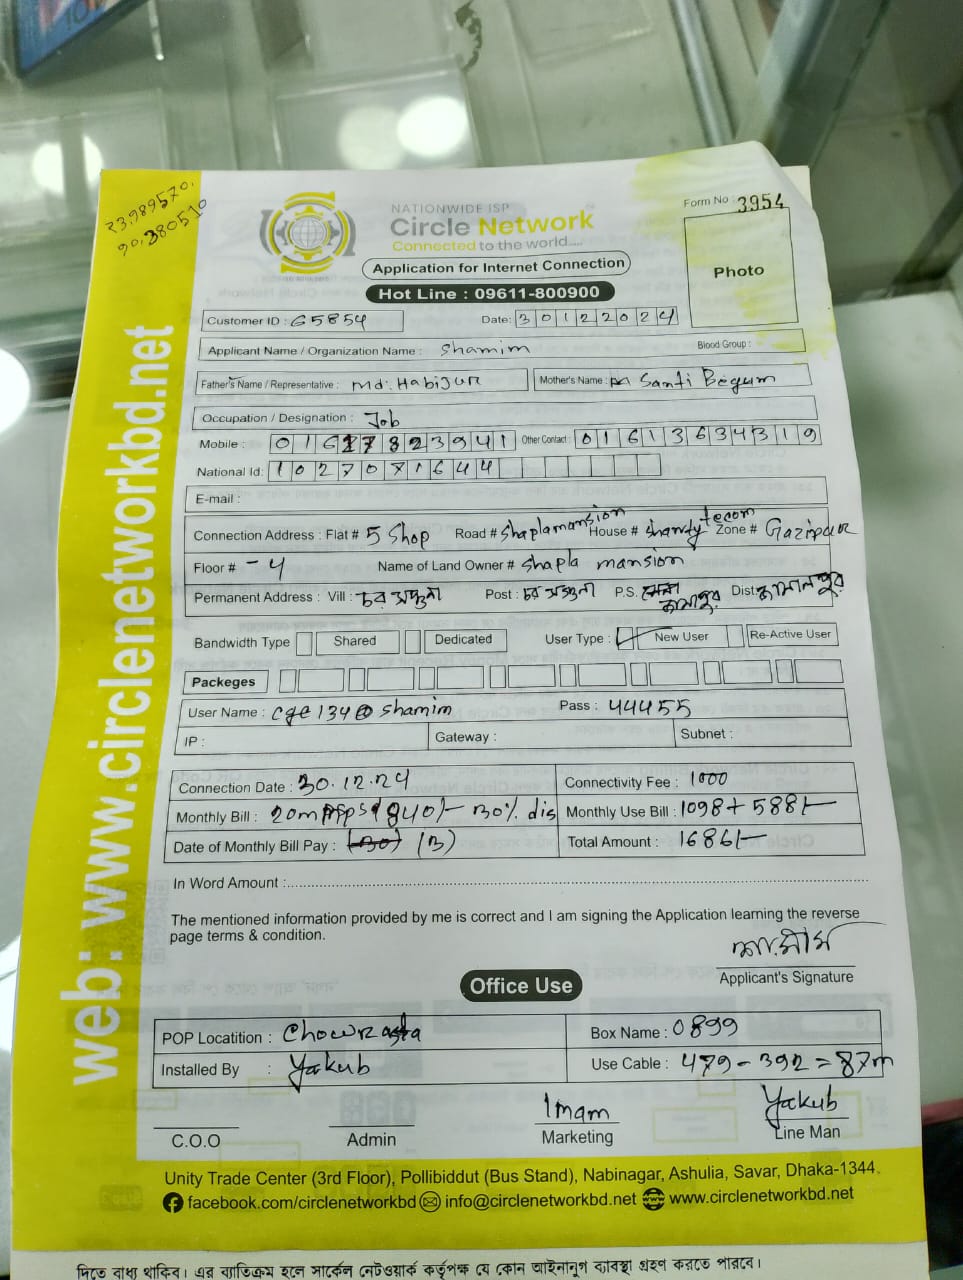 23.989570,
90.380510
NATIONWIDE ISP
Circle Network
Connected to the world....
Form No : 3954
Application for Internet Connection
Photo
Hot Line : 09611-800900
Customer ID : 65854 Date: 30122024
Applicant Name / Organization Name : Shamim Blood Group :
Father's Name / Representative : Md: Habijur Mother's Name : Santi Begum
Occupation / Designation : Job
Mobile : 01617823941 Other Contact : 01613634319
National Id: 1027071644
E-mail :
Connection Address : Flat # 5 Shop Road # Shapla mansion House # tecom Zone # Gazipur
Floor # - 4 Name of Land Owner # Shapla mansion
Permanent Address : Vill : চর Post : চর P.S. Dist: জামালপুর
Bandwidth Type Shared Dedicated User Type : New User Re-Active User
Packeges
User Name : cge134@shamim Pass : 44455
IP : Gateway : Subnet :
Connection Date : 30.12.24 Connectivity Fee : 1000
Monthly Bill : 20mbps 840/- 30% dis Monthly Use Bill : 1098+588/-
Date of Monthly Bill Pay : Total Amount : 1686/-
In Word Amount :
The mentioned information provided by me is correct and I am signing the Application learning the reverse
page terms & condition.
শামীম
Applicant's Signature
Office Use
POP Locatition : Chowrasta Box Name : 0899
Installed By : Yakub Use Cable : 479-392=87m
C.O.O Admin Imam Marketing Yakub Line Man
Unity Trade Center (3rd Floor), Pollibiddut (Bus Stand), Nabinagar, Ashulia, Savar, Dhaka-1344.
facebook.com/circlenetworkbd info@circlenetworkbd.net www.circlenetworkbd.net
web: www.circlenetworkbd.net
দিতে বাধ্য থাকিব। এর ব্যতিক্রম হলে সার্কেল নেটওয়ার্ক কর্তৃপক্ষ যে কোন আইনানুগ ব্যবস্থা গ্রহণ করতে পারবে।